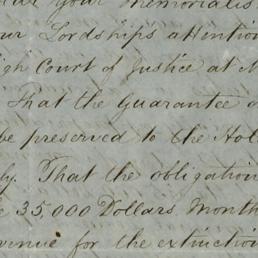 your Memorialis
our Lordships attention
igh Court of Justice at M
That the Guarantee o
be preserved to the Hol
ly. That the obligation
35,000 Dollars Month
venue for the extinction